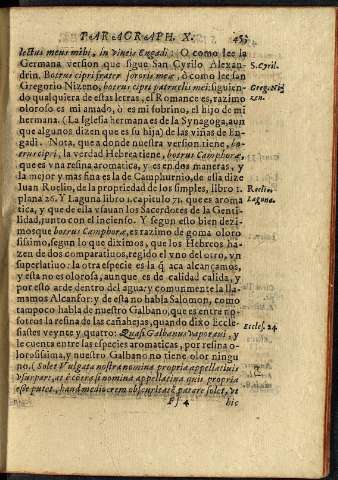 PARAGRAPH. X. 453
lectus meus mihi, in vineis Engadi: O como lee la
Germana version que sigue San Cyrilo Alexan- S. Cyril.
drin. Botrus cipri frater sororis meæ, ò como lee san
Gregorio Nizeno, botrus cipri patruelis mei: siguien- Greg. Ni
do qualquiera de estas letras, el Romance es, razimo zen.
oloroso es mi amado, ò es mi sobrino, el hijo de mi
hermana. (La Iglesia hermana es de la Synagoga, aun
que algunos dizen que es su hija) de las viñas de En-
gadi. Nota, que a donde nuestra version tiene, bo-
trus cipri, la verdad Hebrea tiene, botrus Camphoræ,
que es vna resina aromatica, y es en dos maneras, y
la mejor y mas fina es la de Camphurnio, de ella dize
Iuan Roelio, de la propriedad de los simples, libro 1. Roelio.
plana 26. Y Laguna libro 1. capitulo 71. que es aroma Laguna.
tica, y que de ella vsauan los Sacerdotes de la Genti-
lidad, junto con el incienso. Y segun esto bien dezi-
mos que botrus Camphoræ, es razimo de goma oloro
sissimo, segun lo que diximos, que los Hebreos ha-
zen de dos comparatiuos, regido el vno del otro, vn
superlatiuo: la otra especie es la q̃ aca alcançamos,
y esta no es olorosa, aunque es de calidad calida, y
por esto arde dentro del agua: y comunmente la lla-
mamos Alcanfor: y de esta no habla Salomon, como
tampoco habla de nuestro Galbano, que es entre no-
sotros la resina de las cañahejas, quando dixo Eccle-
siastes veynte y quatro. Quasi Galbanus vaporaui, y Eccles. 24
le cuenta entre las especies aromaticas, por resina o-
lorosissima, y nuestro Galbano no tiene olor ningu
no. (Solet Vulgata nostra nomina propria appellatiuis
vsurpare, at è contra si nomina appellatiua quis propria
esse putet, haud mediocrem obscuritatẽ parare solet, vt
Ff 4 hic